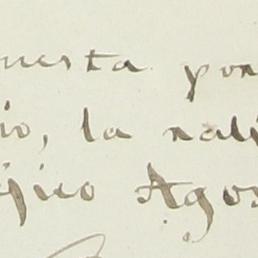 uesta por
io, la nali
gico Agos